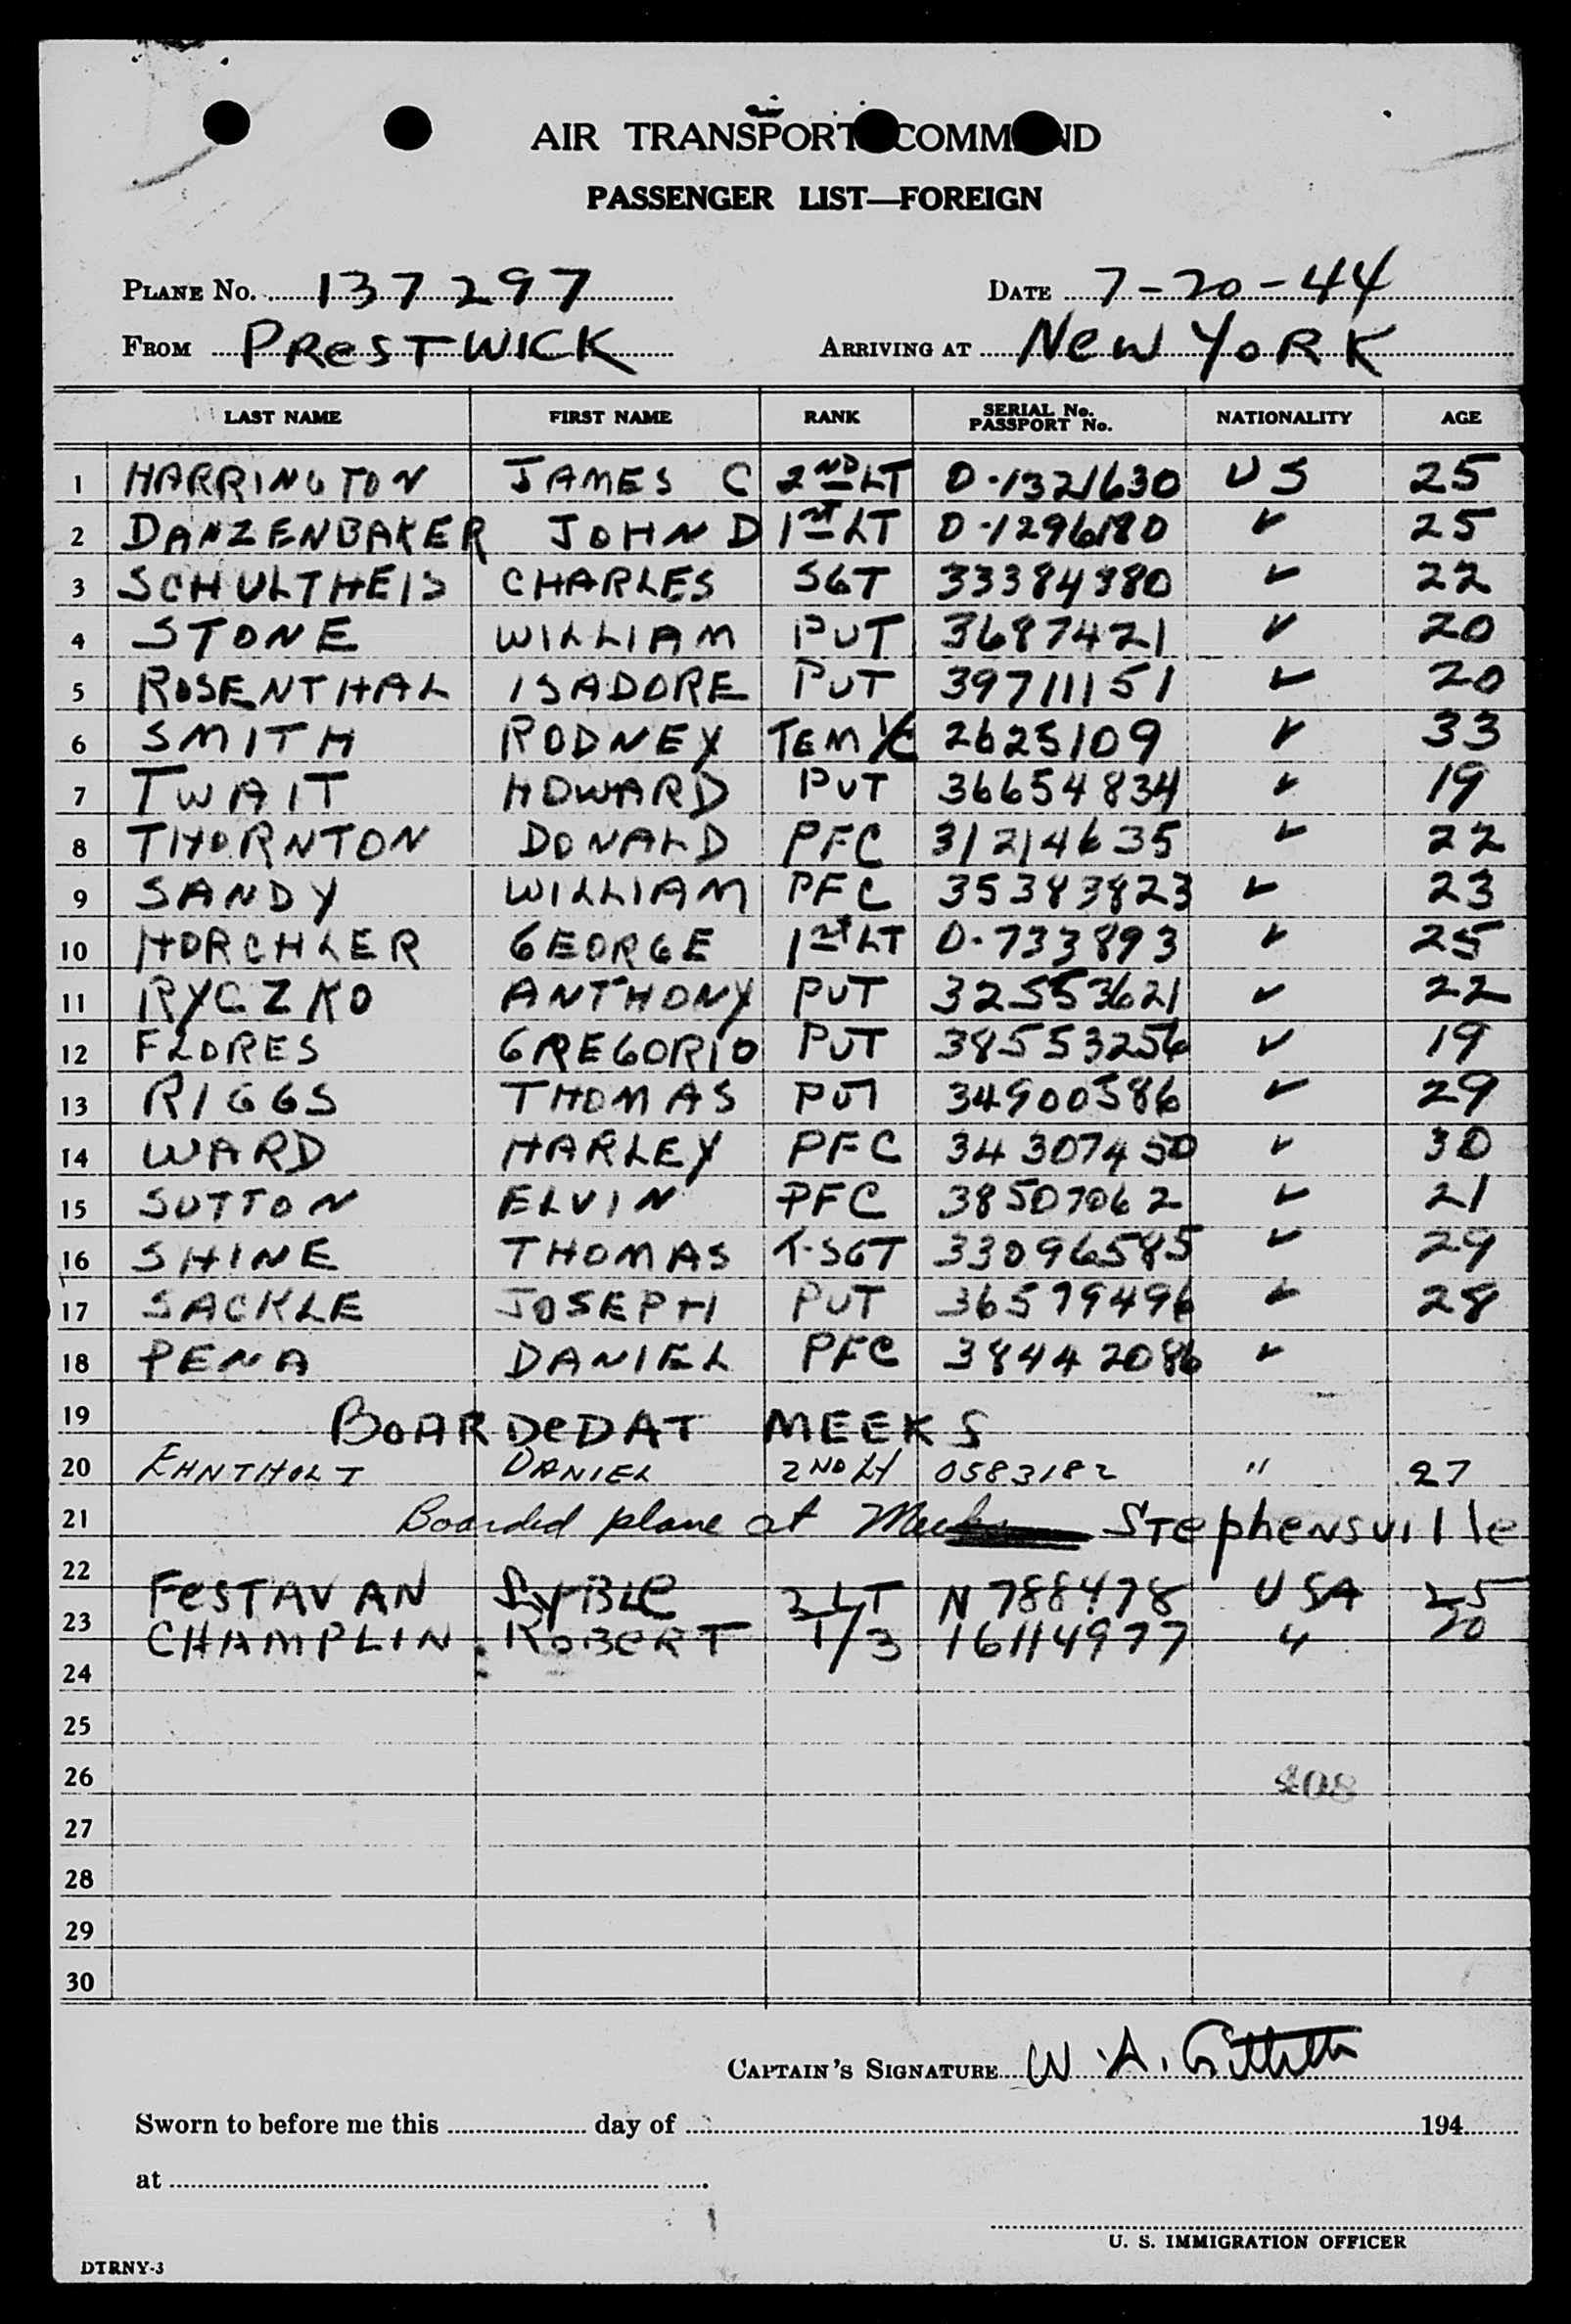 AIR TRANSPORT COMMAND
PASSENGER LIST—FOREIGN
PLANE No. 137297 DATE 7-20-44
FROM PRESTWICK ARRIVING AT NEW YORK
LAST NAME FIRST NAME RANK SERIAL No. PASSPORT No. NATIONALITY AGE
1 HARRINGTON JAMES C 2ND LT O-1321630 US 25
2 DANZENBAKER JOHN D 1st LT O-1296180 ✓ 25
3 SCHULTHEIS CHARLES SGT 33384380 ✓ 22
4 STONE WILLIAM PVT 3687421 ✓ 20
5 ROSENTHAL ISADORE PVT 39711151 ✓ 20
6 SMITH RODNEY TEM 1/C 2625109 ✓ 33
7 TWAIT HOWARD PVT 36654834 ✓ 19
8 THORNTON DONALD PFC 31214635 ✓ 22
9 SANDY WILLIAM PFC 35383823 ✓ 23
10 HORCHLER GEORGE 1st LT O-733893 ✓ 25
11 RYCZKO ANTHONY PVT 32553621 ✓ 22
12 FLORES GREGORIO PVT 38553256 ✓ 19
13 RIGGS THOMAS PVT 34900586 ✓ 29
14 WARD HARLEY PFC 34307450 ✓ 30
15 SUTTON ELVIN PFC 38507062 ✓ 21
16 SHINE THOMAS T-SGT 33096585 ✓ 29
17 SACKLE JOSEPH PVT 36579496 ✓ 28
18 PENA DANIEL PFC 38442086 ✓
19 BOARDED AT MEEKS
20 EHNTHOLT DANIEL 2ND Lt 0583182 " 27
21 Boarded plane at Stephensville
22 FESTAVAN SYBLE 2 LT N788478 USA 25
23 CHAMPLIN ROBERT T/3 16114977 " 20
24
25
26 408
27
28
29
30
CAPTAIN'S SIGNATURE W. A.
Sworn to before me this day of 194
at
U. S. IMMIGRATION OFFICER
DTRNY-3